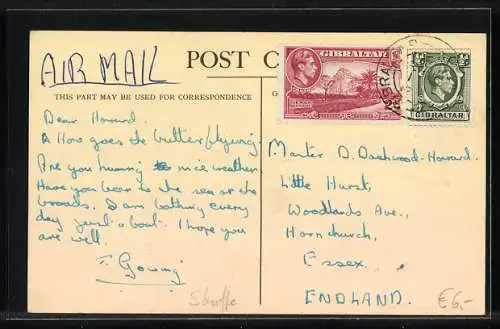 AIR MAIL
POST
THIS PART MAY BE USED FOR CORRESPONDENCE
GIBRALTAR
GIBRALTAR
Dear Howard.
A How goes the butterflying
Are you having nice weather
Have you been to the sea or the
broads. I am bathing every
day just about. I hope you
are well.
Master D. Dashwood-Howard.
Little Hurst,
Woodlands Ave.,
Hornchurch,
Essex
ENGLAND.
€6.-